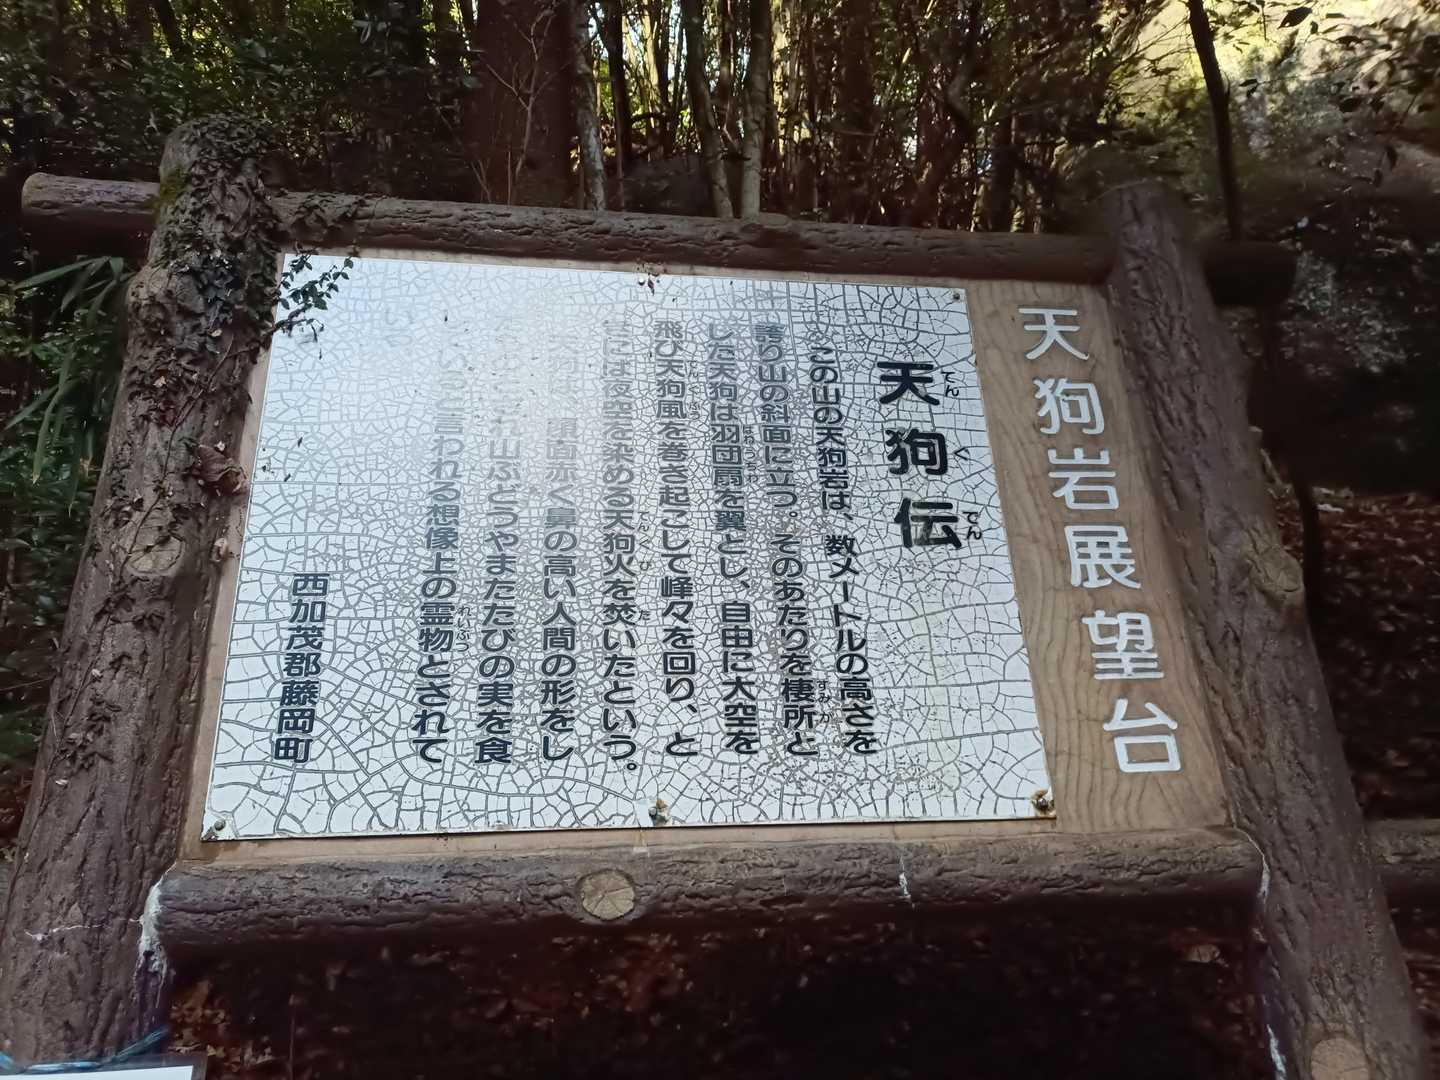 天狗岩展望台
天狗伝
てんぐでん
この山の天狗岩は、数メートルの高さを
誇り山の斜面に立つ。そのあたりを棲所と
すみか
した天狗は羽団扇を翼とし、自由に大空を
はねうちわ
飛び天狗風を巻き起こして峰々を回り、と
には夜空を染める天狗火を焚いたという。
た
赤く鼻の高い人間の形をし
山ぶどうやまたたびの実を食
いると言われる想像上の霊物とされて
れいぶつ
い
西加茂郡藤岡町